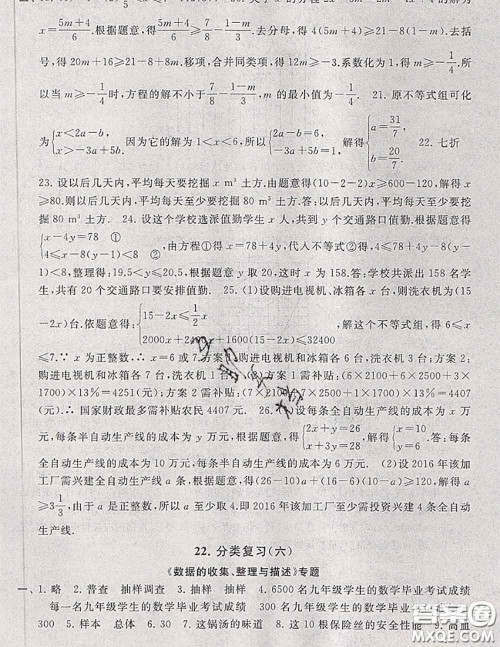 x=\frac{5m+4}{6}.根据题意,得\frac{5m+4}{6}≥\frac{7}{8}-\frac{1-m}{3}.去分母,得4(5m+4)≥21-8(1-m).去括
号,得20m+16≥21-8+8m.移项,合并同类项,得12m≥-3.系数化为1,得m≥-\frac{1}{4}.所
以当m≥-\frac{1}{4}时,方程的解不小于\frac{7}{8}-\frac{1-m}{3},m的最小值为-\frac{1}{4}. 21.原不等式组可化
为{x<2a-b, x>-3a+5b. 因为它的解为1<x<6,所以{2a-b=6, -3a+5b=1. 解得{a=\frac{31}{7}, b=\frac{20}{7}. 22.七折
23.设以后几天内,平均每天要挖掘x m³土方.由题意得(10-2-2)x≥600-120,解得x
≥80.则以后几天内,平均每天至少要挖掘80 m³土方. 即以后几天内,平均每天至少要挖
掘80 m³土方. 24.设这个学校选派值勤学生x人,共到y个交通路口值勤.根据题意得
{x-4y=78 ① 4≤x-8(y-1)<8 ② ,由方程①得x=78+4y,代人不等式②得:4≤78+4y-8(y-
1)<8,整理得;19.5<y≤20.5.根据题意y取20,这时x为158.答:学校共派出158名学
生,共有20个交通路口要安排值勤. 25.(1)设购进电视机、冰箱各x台,则洗衣机为(15
-2x)台.依题意得:{15-2x≤\frac{1}{2}x 2000x+2400x+1600(15-2x)≤32400 ,解这个不等式组,得6≤x
≤7.∵x为正整数,∴x=6或7.方案1:购进电视机和冰箱各6台,洗衣机3台;方案2:
购进电视机和冰箱各7台,洗衣机1台.(2)方案1需补贴:(6×2100+6×2500+3×
1700)×13%=4251(元);方案2需补贴:(7×2100+7×2500+1×1700)×13%=
4407(元).∴国家财政最多需补贴农民4407元. 26.(1)设每条全自动生产线的成本为x万
元,每条半自动生产线的成本为y万元,根据题意,得{x+2y=26, 2x+y=28. 解得{x=10, y=8. 答:每条
全自动生产线的成本为10万元,每条半自动生产线的成本为6万元. (2)设2016年该加
工厂需兴建全自动生产线a条,根据题意,得(26-10)a+(16-6)(10-a)≥120,解得
a≥3\frac{1}{3},由于a是正整数,所以a至少取4.即2016年该加工厂至少需投资兴建4条全自动
生产线.
22.分类复习(六)
《数据的收集、整理与描述》专题
一、1.略 2.普查 抽样调查 3.抽样 抽样 4.6500名九年级学生的数学毕业考试成绩
每一名九年级学生的数学毕业考试成绩 300名九年级学生的数学毕业考试成绩
300 5.样本 总体 6.30 7.这锅汤的味道 8.这10根保险丝的安全性能 9.高血